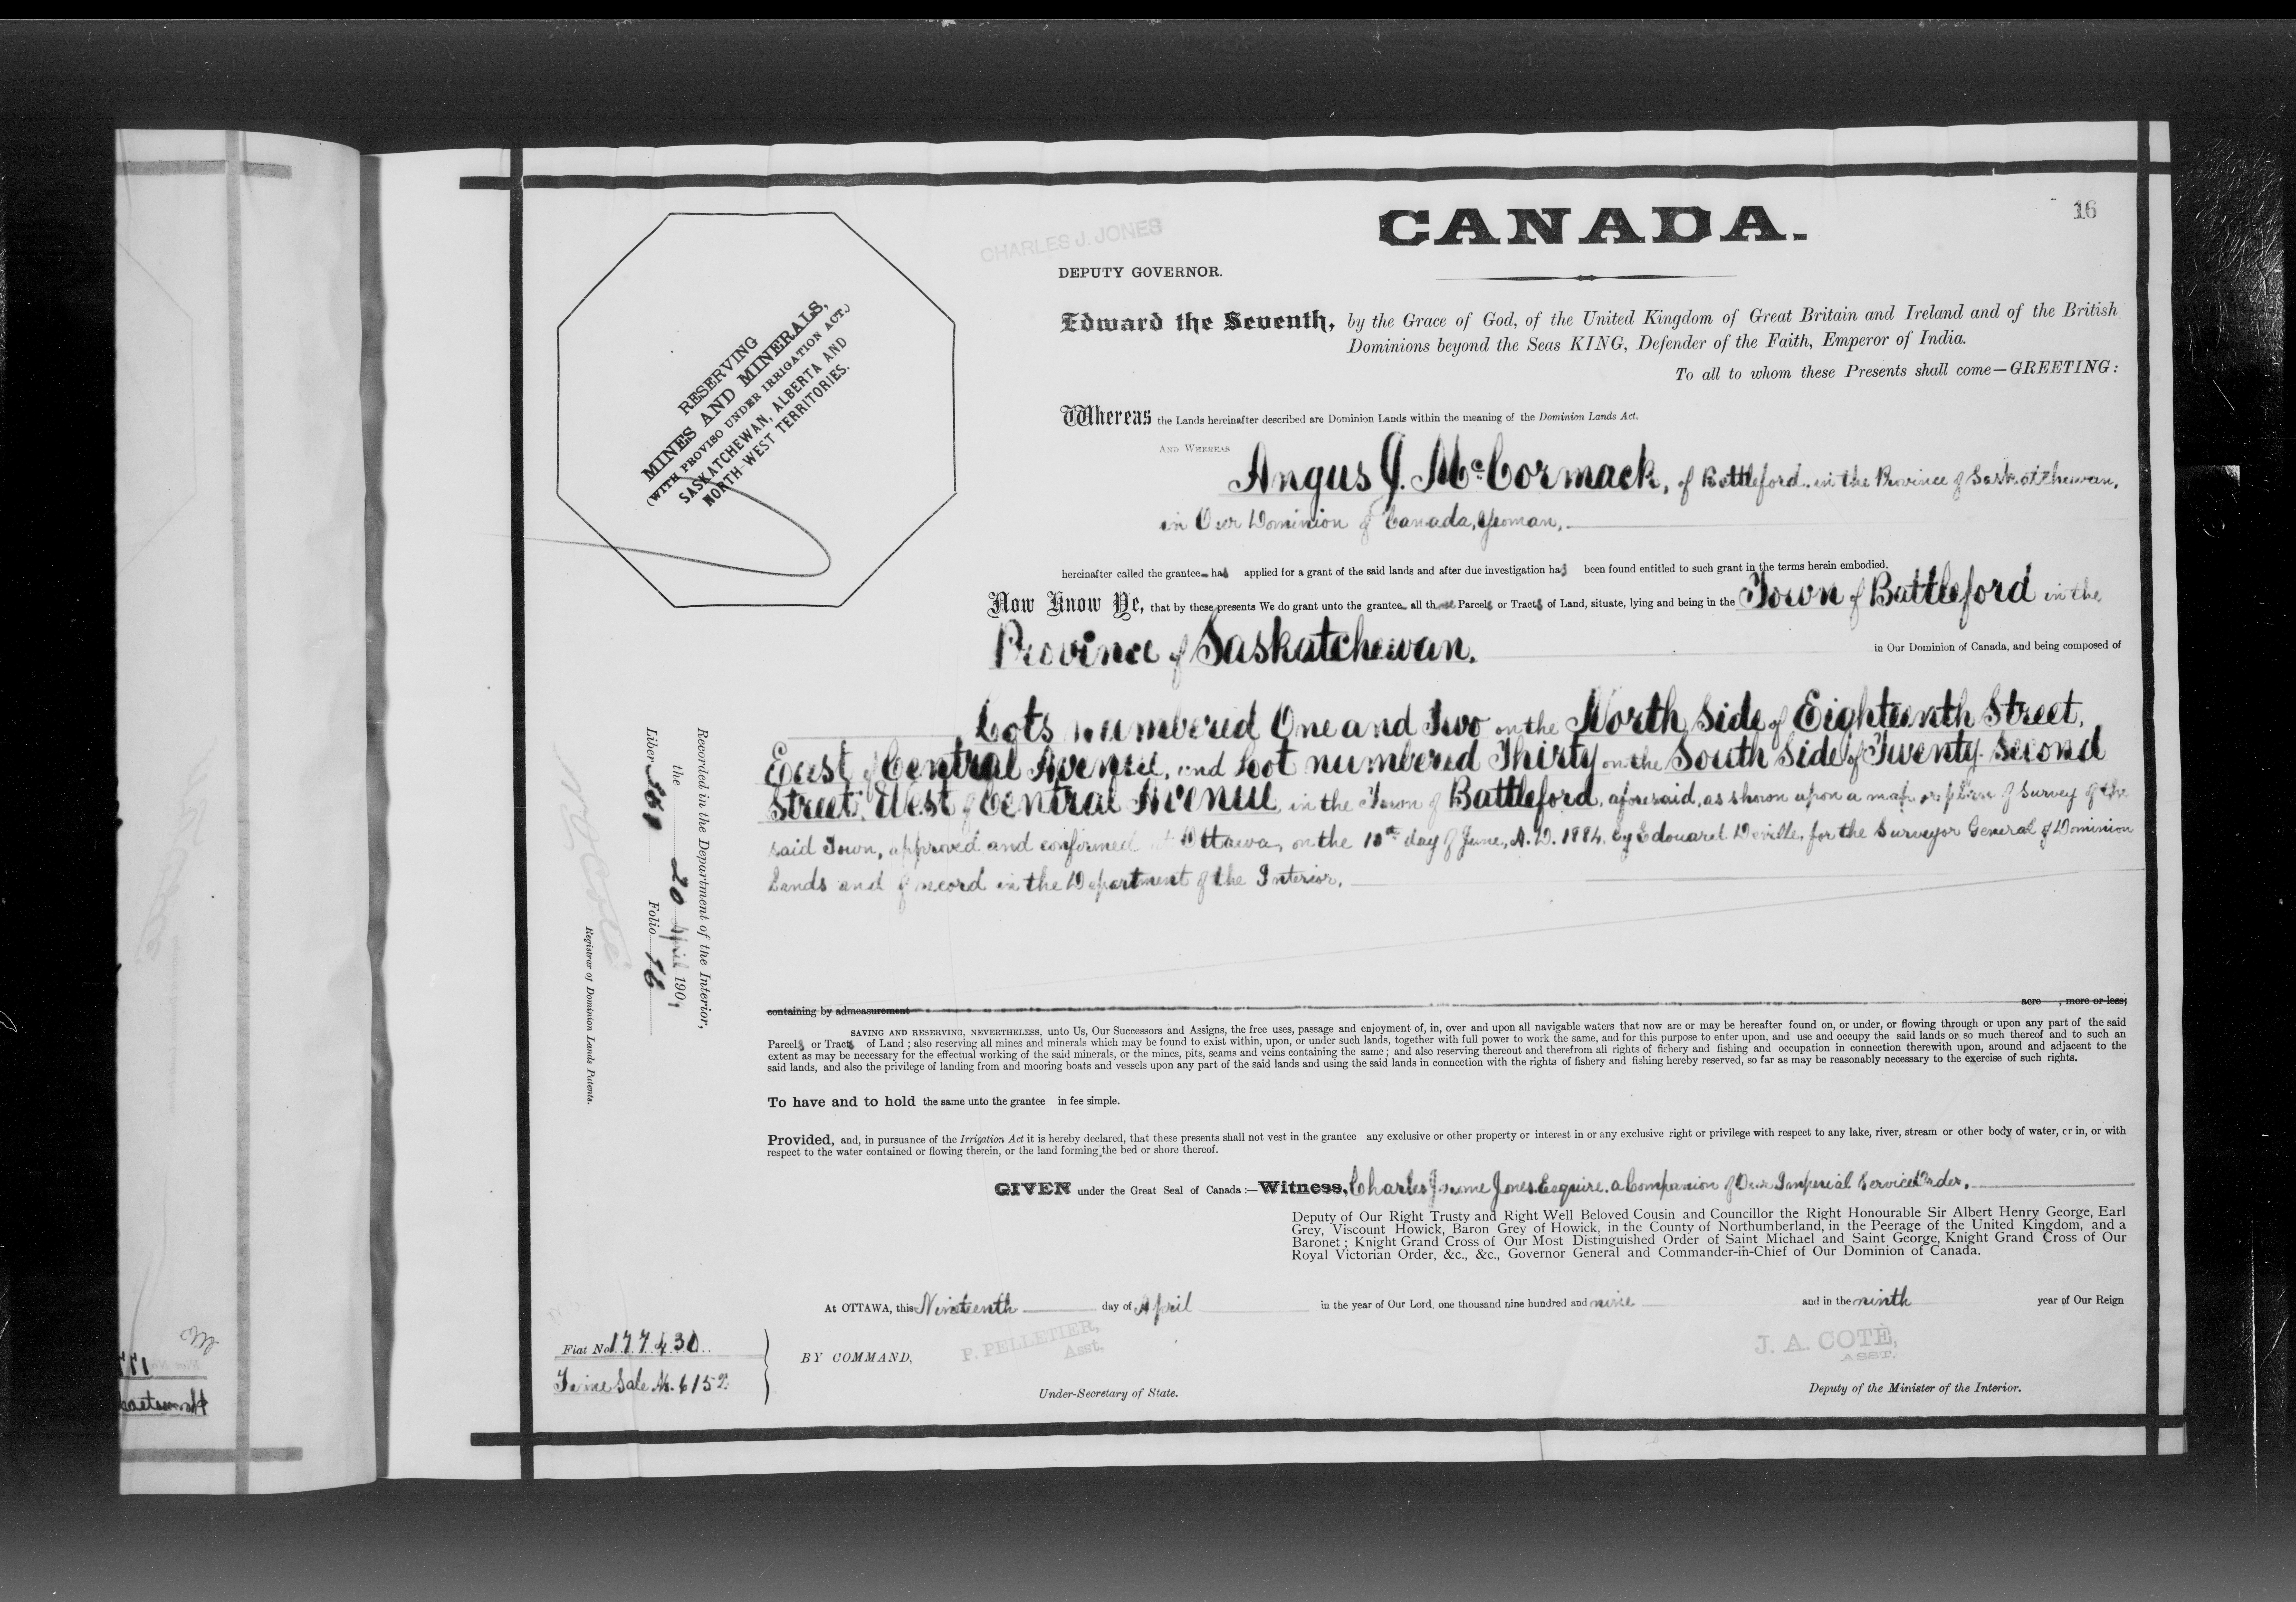 CANADA.
16
CHARLES J. JONES
DEPUTY GOVERNOR.
RESERVING
MINES AND MINERALS,
(WITH PROVISO UNDER IRRIGATION ACT.)
SASKATCHEWAN, ALBERTA AND
NORTH-WEST TERRITORIES.
Edward the Seventh, by the Grace of God, of the United Kingdom of Great Britain and Ireland and of the British
Dominions beyond the Seas KING, Defender of the Faith, Emperor of India.
To all to whom these Presents shall come—GREETING:
Whereas the Lands hereinafter described are Dominion Lands within the meaning of the Dominion Lands Act.
AND WHEREAS
Angus J. McCormack, of Battleford, in the Province of Saskatchewan,
in Our Dominion of Canada, Yeoman,
hereinafter called the grantee has applied for a grant of the said lands and after due investigation has been found entitled to such grant in the terms herein embodied.
Now Know Ye, that by these presents We do grant unto the grantee all those Parcels or Tracts of Land, situate, lying and being in the Town of Battleford in the
Province of Saskatchewan. in Our Dominion of Canada, and being composed of
Lots numbered One and Two on the North side of Eighteenth Street,
East of Central Avenue, and Lot numbered Thirty on the South side of Twenty-second
Street, West of Central Avenue in the Town of Battleford, aforesaid, as shown upon a map or plan of Survey of the
said Town, approved and confirmed at Ottawa, on the 10th day of June, A.D. 1884, by Edouard Deville, for the Surveyor General of Dominion
Lands and of record in the Department of the Interior.
containing by admeasurement acre , more or less;
SAVING AND RESERVING, NEVERTHELESS, unto Us, Our Successors and Assigns, the free uses, passage and enjoyment of, in, over and upon all navigable waters that now are or may be hereafter found on, or under, or flowing through or upon any part of the said
Parcels or Tracts of Land; also reserving all mines and minerals which may be found to exist within, upon, or under such lands, together with full power to work the same, and for this purpose to enter upon, and use and occupy the said lands or so much thereof and to such an
extent as may be necessary for the effectual working of the said minerals, or the mines, pits, seams and veins containing the same; and also reserving thereout and therefrom all rights of fichery and fishing and occupation in connection therewith upon, around and adjacent to the
said lands, and also the privilege of landing from and mooring boats and vessels upon any part of the said lands and using the said lands in connection with the rights of fishery and fishing hereby reserved, so far as may be reasonably necessary to the exercise of such rights.
To have and to hold the same unto the grantee in fee simple.
Provided, and, in pursuance of the Irrigation Act it is hereby declared, that these presents shall not vest in the grantee any exclusive or other property or interest in or any exclusive right or privilege with respect to any lake, river, stream or other body of water, or in, or with
respect to the water contained or flowing therein, or the land forming the bed or shore thereof.
GIVEN under the Great Seal of Canada:—Witness, Charles Jerome Jones, Esquire, a Companion of Our Imperial Service Order,
Deputy of Our Right Trusty and Right Well Beloved Cousin and Councillor the Right Honourable Sir Albert Henry George, Earl
Grey, Viscount Howick, Baron Grey of Howick, in the County of Northumberland, in the Peerage of the United Kingdom, and a
Baronet; Knight Grand Cross of Our Most Distinguished Order of Saint Michael and Saint George, Knight Grand Cross of Our
Royal Victorian Order, &c., &c., Governor General and Commander-in-Chief of Our Dominion of Canada.
At OTTAWA, this Nineteenth day of April in the year of Our Lord, one thousand nine hundred and nine and in the ninth year of Our Reign
BY COMMAND,
P. PELLETIER,
Asst.
Under-Secretary of State.
J. A. COTÉ,
ASST.
Deputy of the Minister of the Interior.
Fiat No 177430
Time Sale No. 6152
Recorded in the Department of the Interior,
the 20 April 1909
Liber Folio 16
N O Coté
Registrar of Dominion Lands Patents.